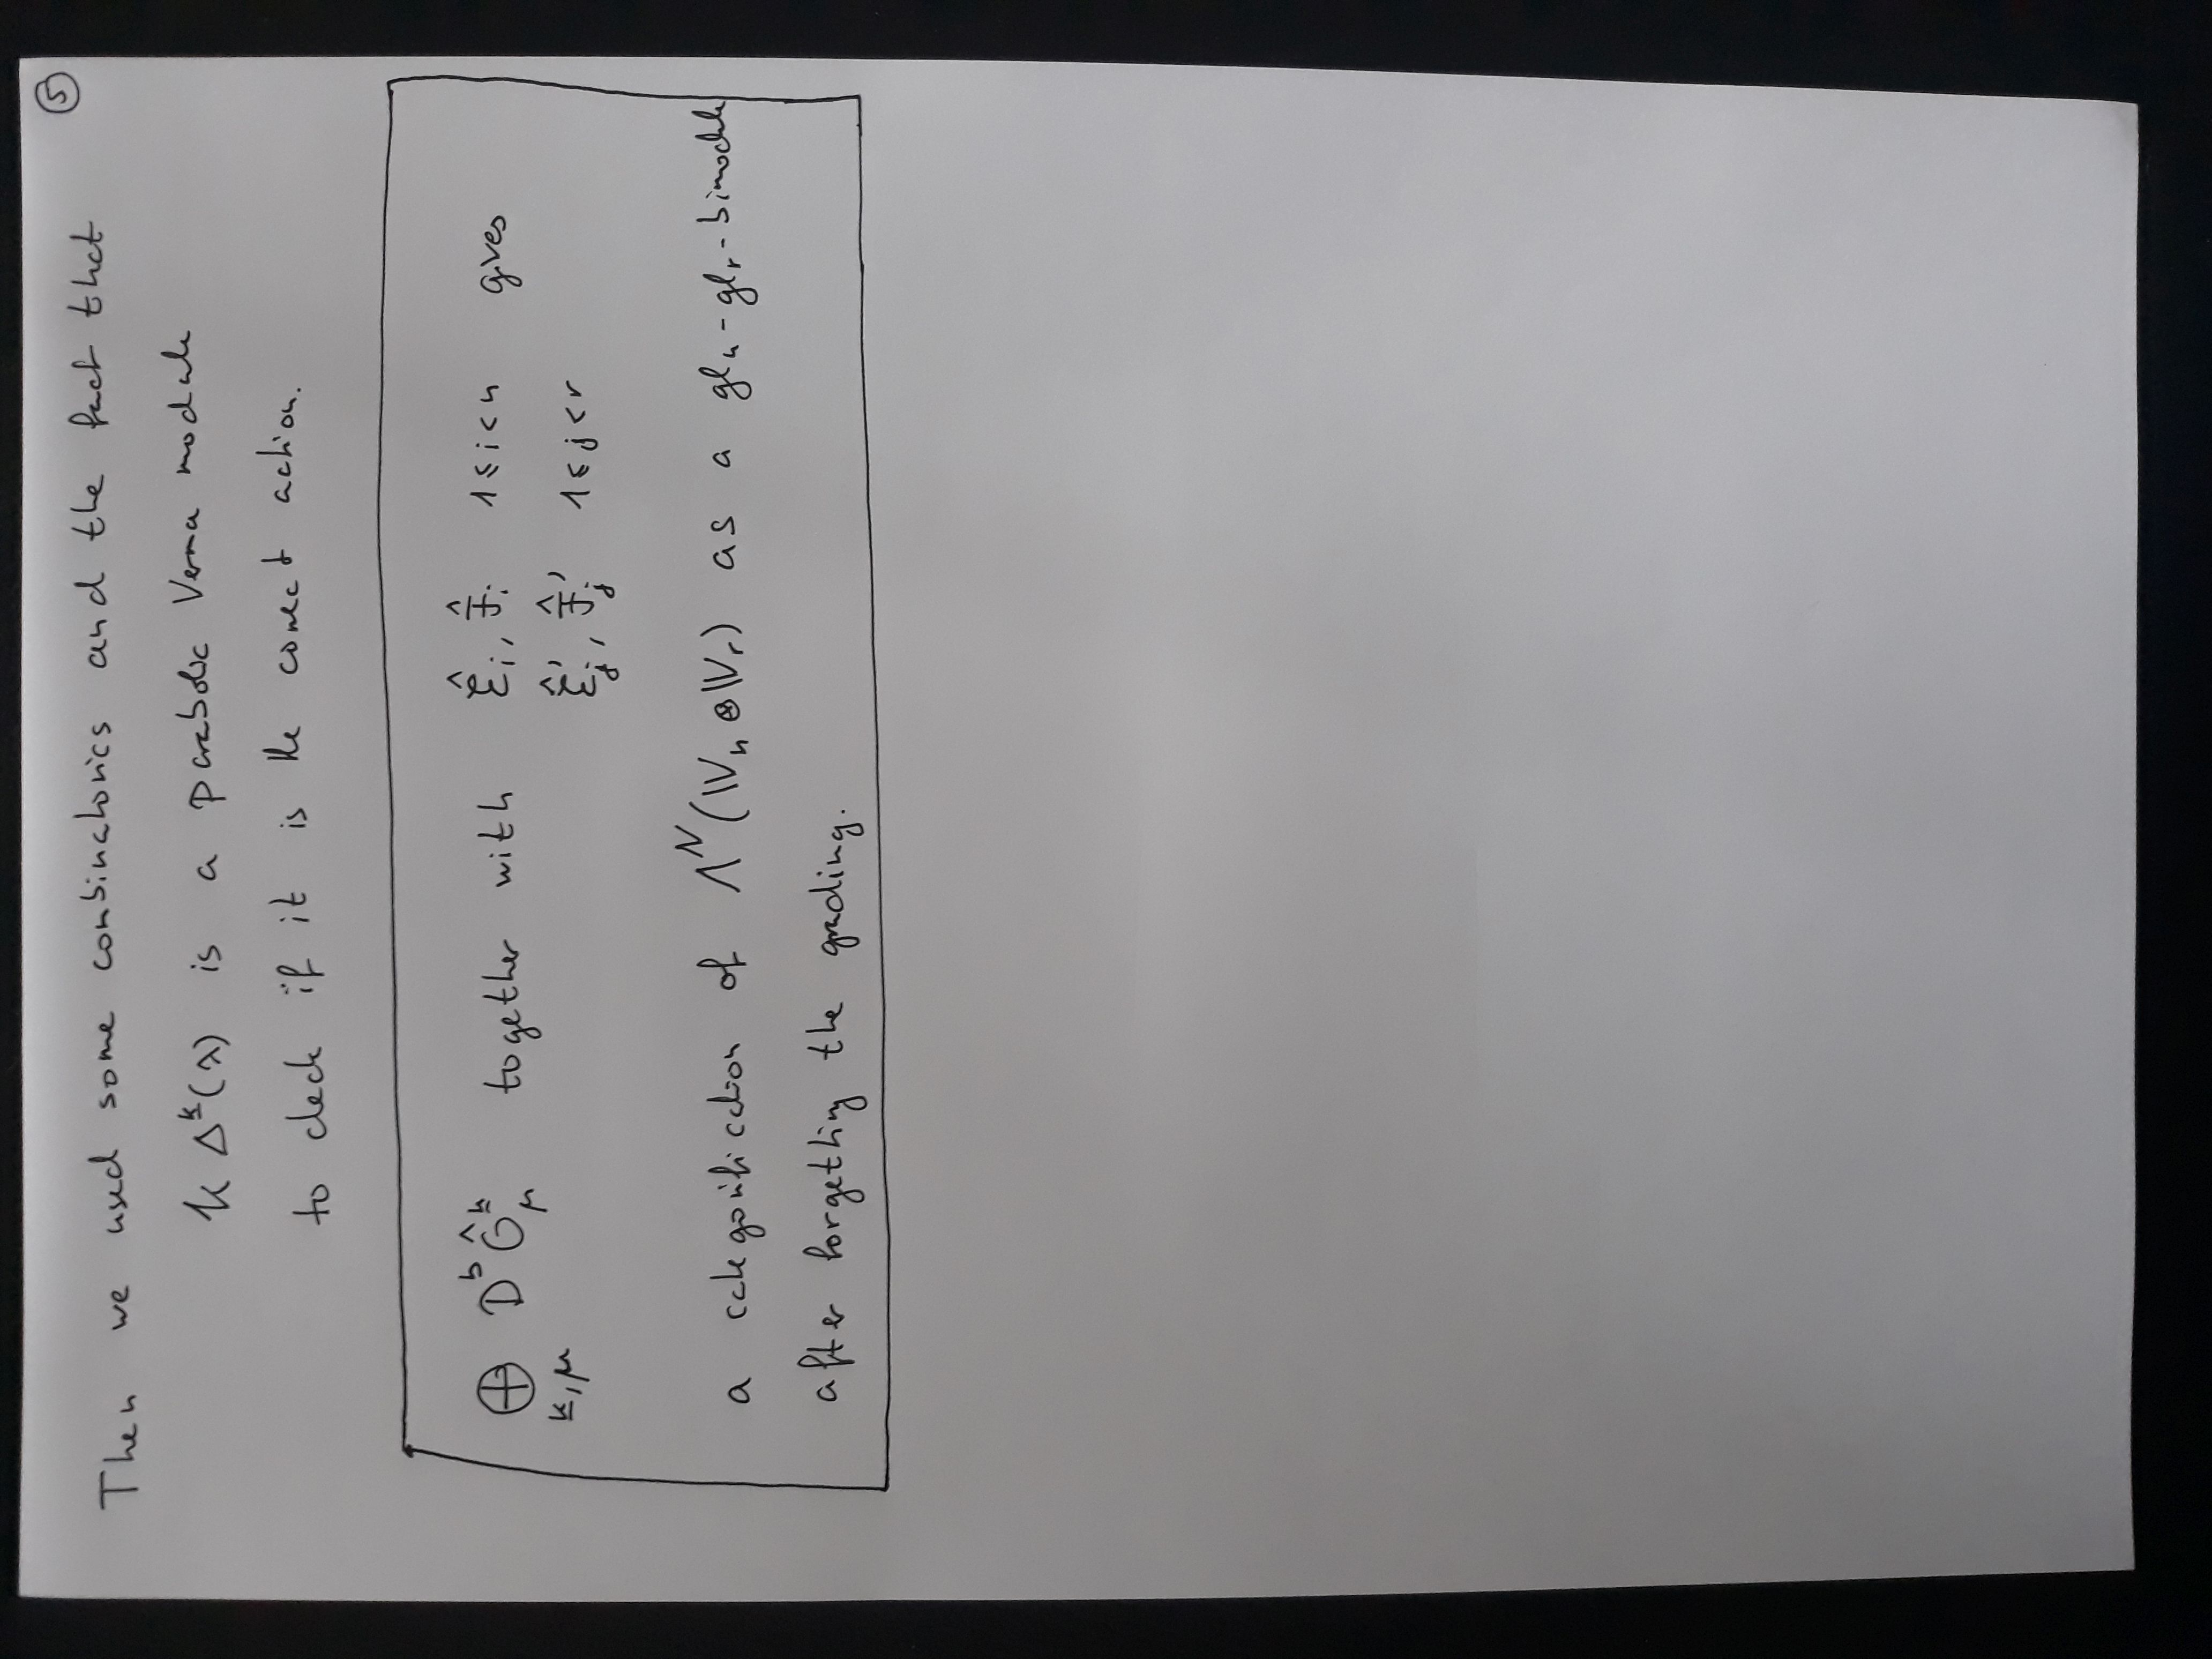 ⑤
Then we used some combinatorics and the fact that
K Δ^k̲(λ) is a parabolic Verma module
to check if it is the correct action.
⊕_{k̲,μ} D^b Ô^k̲_μ together with Ê_i, F̂_i 1≤i<n gives
Ê'_j, F̂'_j 1≤j<r
a categorification of Λ^N(𝕍_n ⊗ 𝕍_r) as a gl_n-gl_r-bimodule
after forgetting the grading.